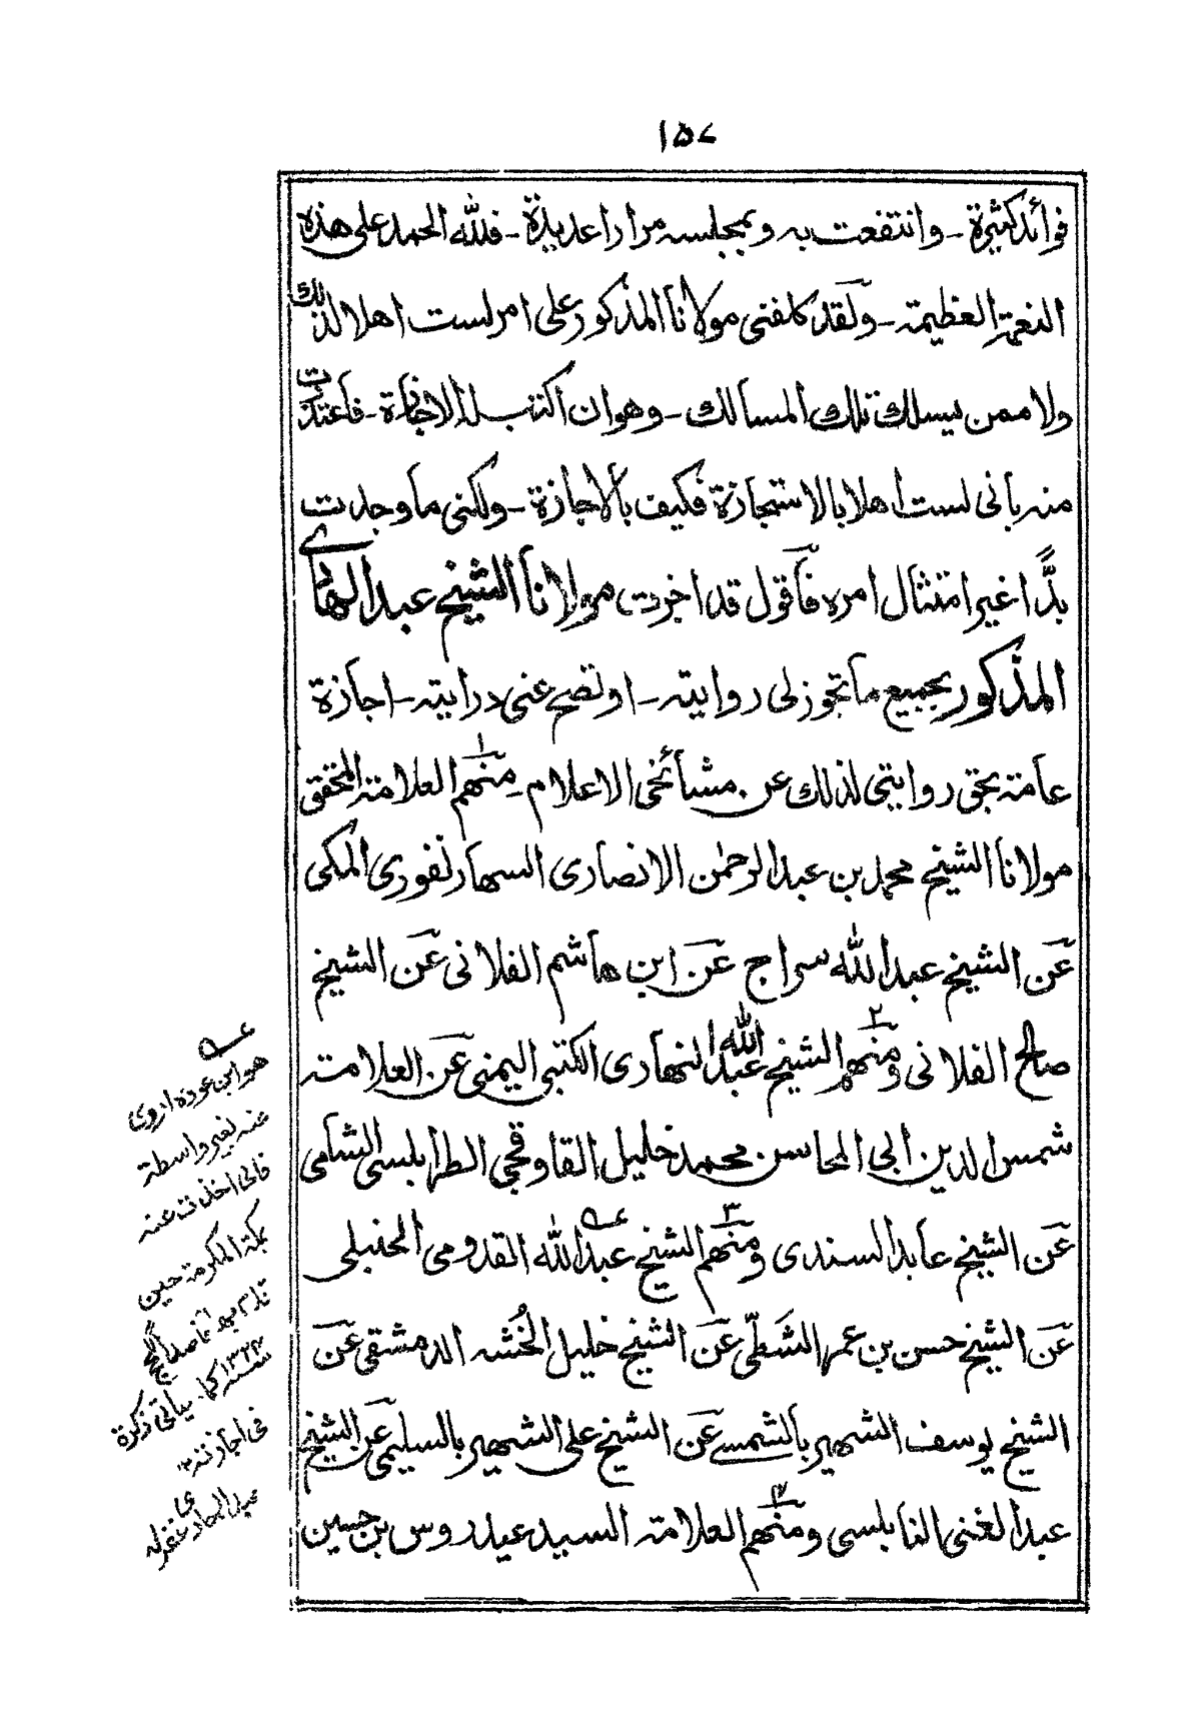 ١٥٧
فوائد كثيرة ـ وانتفعت به وبمجلسه مرارا عديدة ـ فلله الحمد على هذه
النعمة العظيمة ـ ولقد كلفنى مولانا المذكور على امر لست اهلا لذلك
ولا ممن يسلك تلك المسالك ـ وهو ان اكتب له الاجازة ـ فاعتذرت
منه بانى لست اهلا بالاستجازة فكيف بالاجازة ـ ولكنى ما وجدت
بدًّا غير امتثال امره فاقول قد اجزت مولانا الشيخ عبد الهادى
المذكور بجميع ما تجوز لى روايته ـ او تصح عنى درايته ـ اجازة
عامة بحق روايتى لذلك عن مشائخى الاعلام ـ ١ منهم العلامة المحقق
مولانا الشيخ محمد بن عبد الرحمن الانصارى السهارنفورى المكى
عن الشيخ عبد الله سراج عن ابن هاشم الفلانى عن الشيخ
صالح الفلانى ٢ ومنهم الشيخ عبد الله النهارى الكتبى اليمنى عن العلامة
شمس الدين ابى المحاسن محمد خليل القاوقجى الطرابلسى الشامى
عن الشيخ عابد السندى ٣ ومنهم الشيخ عبد الله القدومى الحنبلى
عن الشيخ حسن بن عمر الشطّى عن الشيخ خليل الخُشه الدمشقى عن
الشيخ يوسف الشهير بالشمسى عن الشيخ على الشهير بالسليمى عن الشيخ
عبد الغنى النابلسى ٤ ومنهم العلامة السيد عيدروس بن حسين
هو ابن عوده اروى
عنه بغير واسطة
فانى اخذت عنه
بمكة المكرمة حين
قاصد الحج
سنة ١٣٢٣ كما سياتى ذكرة
فى اجازته ١٢
عبد الهادى غفر له